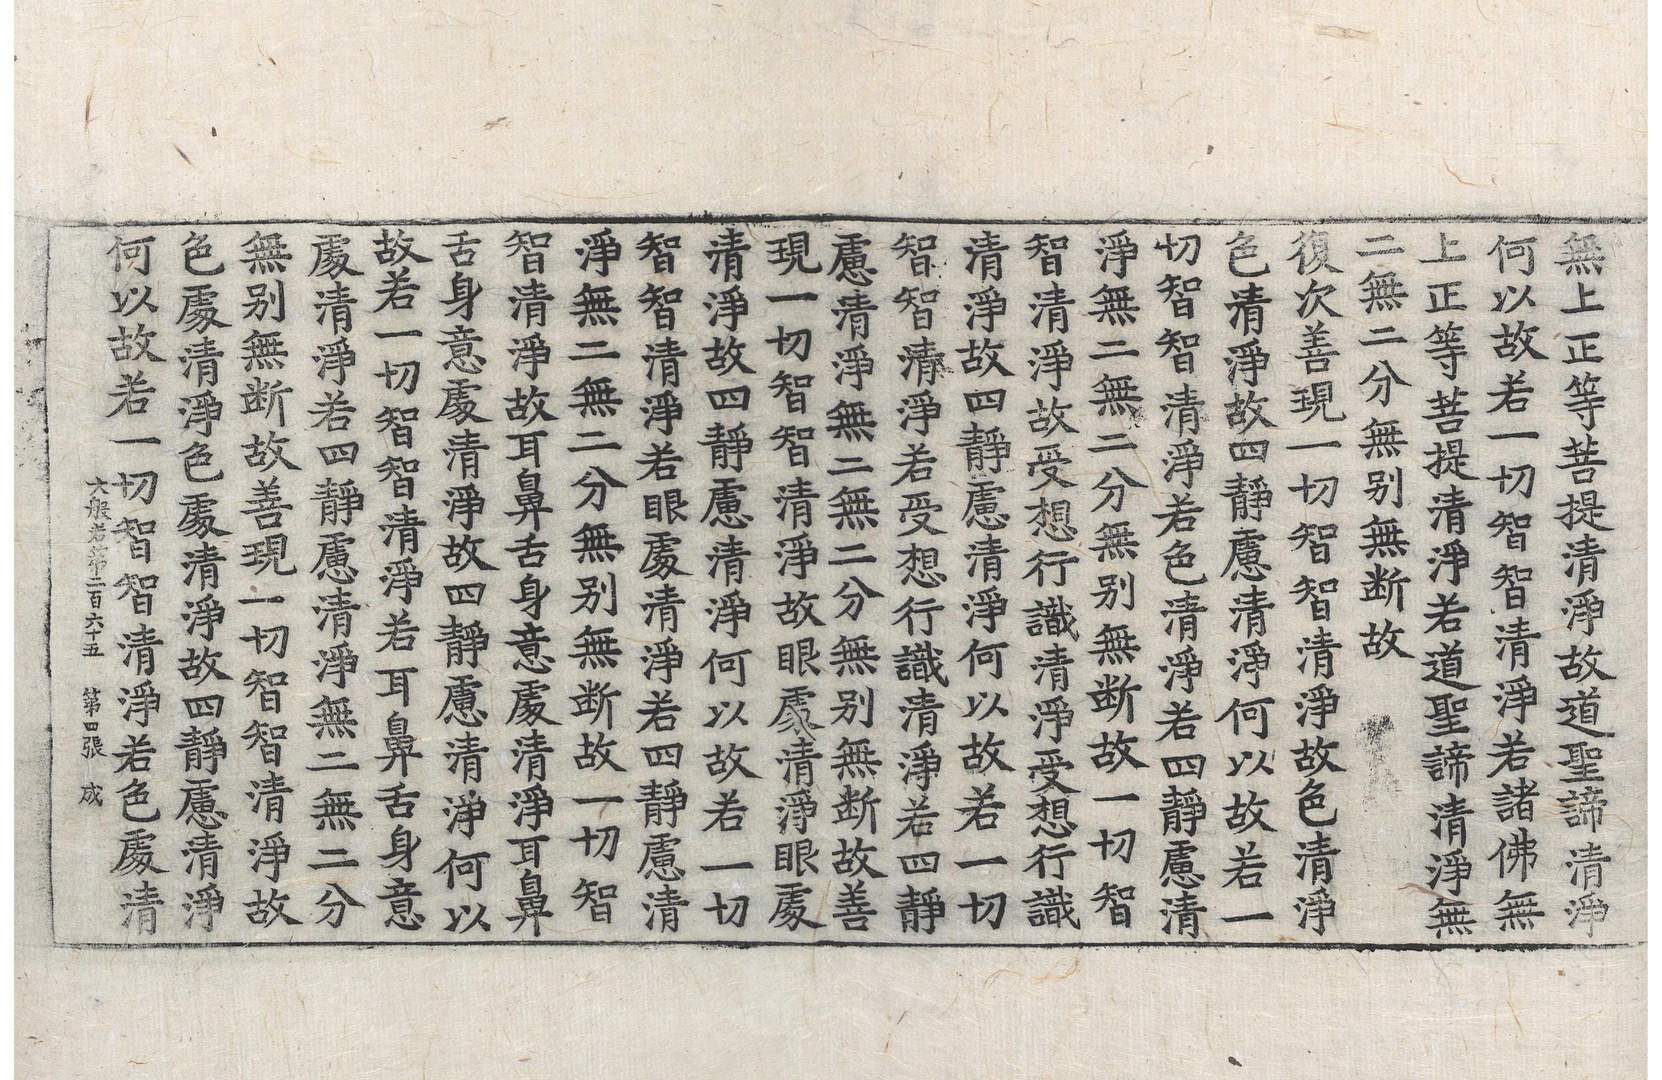 無上正等菩提清淨故道聖諦清淨
何以故若一切智智清淨若諸佛無
上正等菩提清淨若道聖諦清淨無
二無二分無別無斷故
復次善現一切智智清淨故色清淨
色清淨故四靜慮清淨何以故若一
切智智清淨若色清淨若四靜慮清
淨無二無二分無別無斷故一切智
智清淨故受想行識清淨受想行識
清淨故四靜慮清淨何以故若一切
智智清淨若受想行識清淨若四靜
慮清淨無二無二分無別無斷故善
現一切智智清淨故眼處清淨眼處
清淨故四靜慮清淨何以故若一切
智智清淨若眼處清淨若四靜慮清
淨無二無二分無別無斷故一切智
智清淨故耳鼻舌身意處清淨耳鼻
舌身意處清淨故四靜慮清淨何以
故若一切智智清淨若耳鼻舌身意
處清淨若四靜慮清淨無二無二分
無別無斷故善現一切智智清淨故
色處清淨色處清淨故四靜慮清淨
何以故若一切智智清淨若色處清
大般若第二百六十五 第四張 成